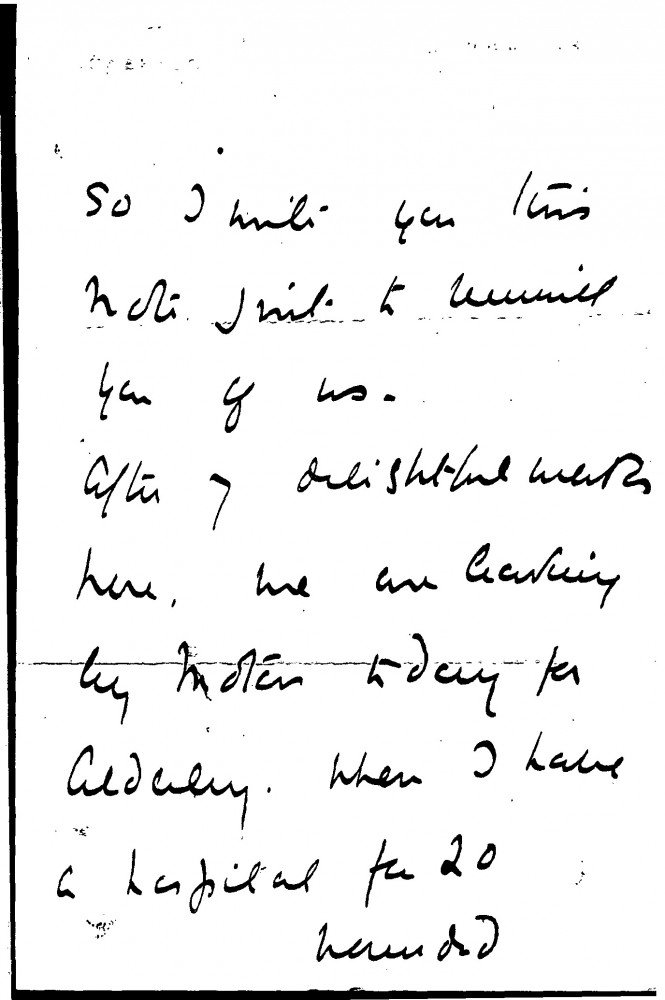 So I write you this
note just to remind
you of us.
After 7 delightful weeks
here, we are leaving
by Motor today for
Alderley. Where I have
a hospital for 20
wounded